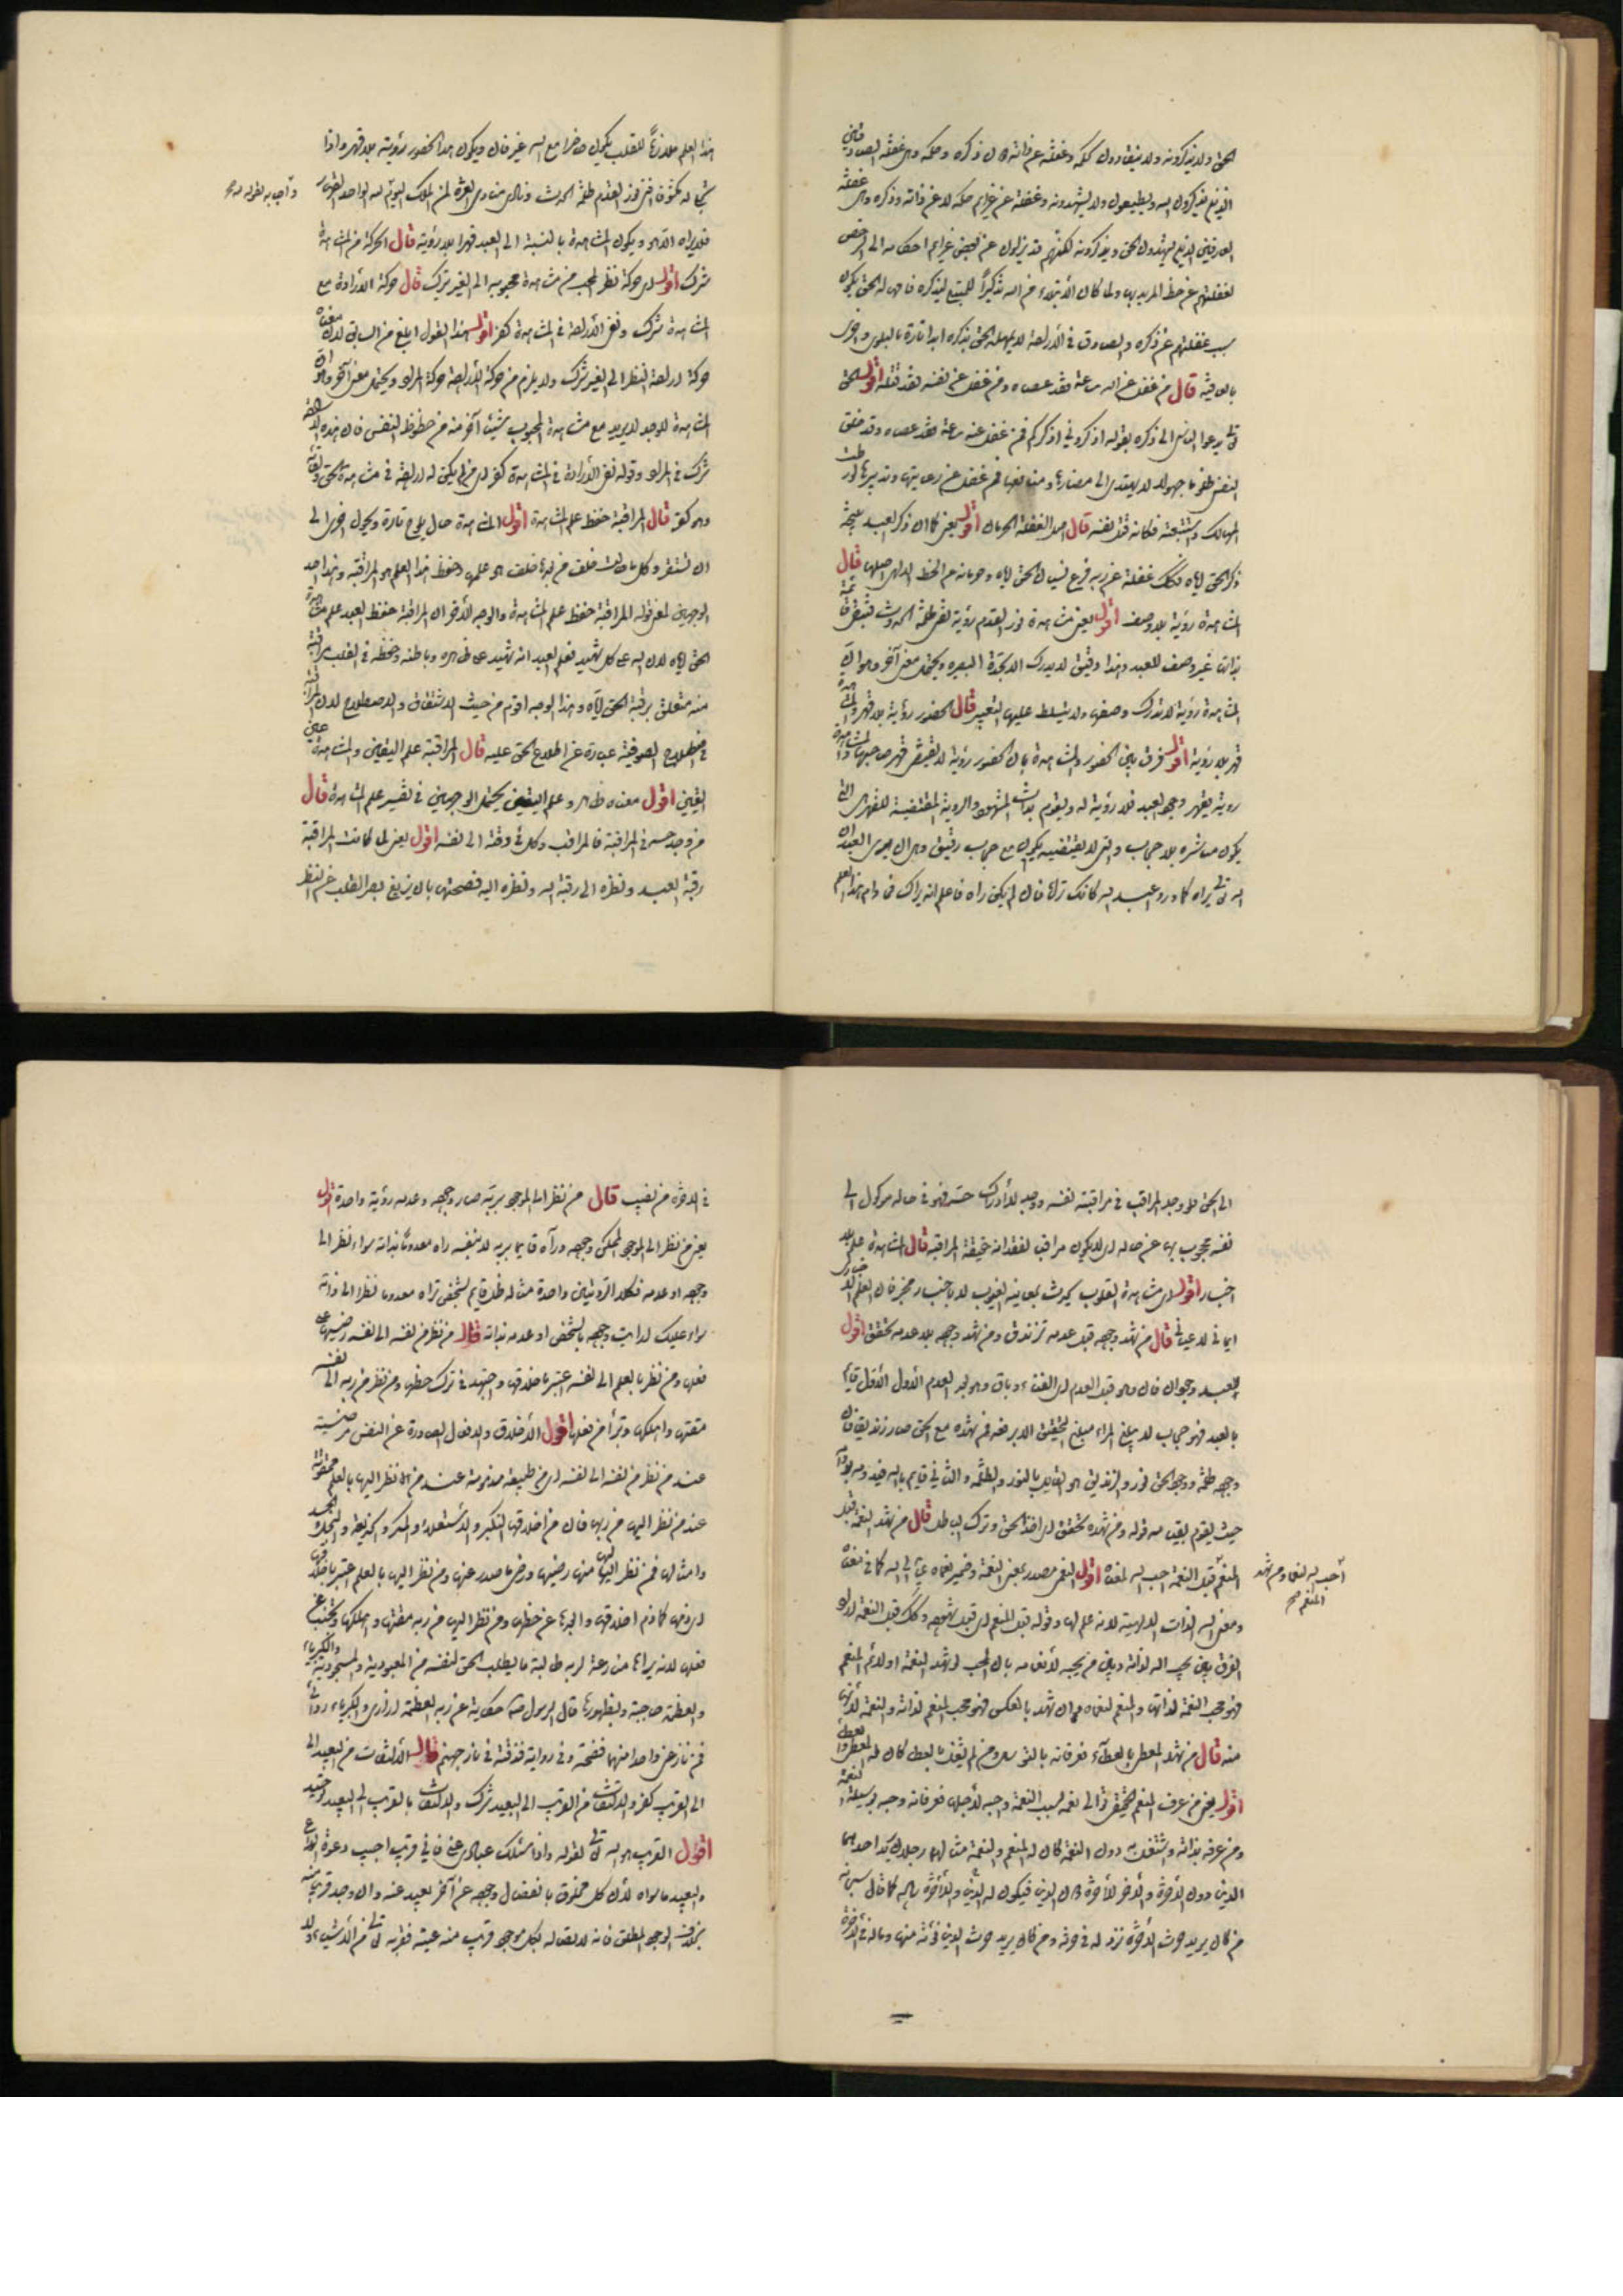 الحق ولا يذكرونه ولا ينقادون لحكمه وغفلته عن ذاته دون ذكره وحكمه وهي غفلة
الذين يذكرون الله ويطيعون ولا يشهدونه وغفلة عن غرايم حكمه لا عن ذاته وذكره وهي غفلة
العارفين الذين يشهدون الحق ويذكرونه لكنهم قد يزلون عن بعض غرايم احكامه الى الرخص
لغفلتهم عن حظ المريد بها ولما كان الابتلاء من الله تذكيراً للمبتلى ليذكره
سبب غفلتهم عن ذكره والصادق في الارادة لا يمهله الحق بذكره ابدا تارة بالبلوى واخرى
بالعافية قال من غفل عن الله ساعة فقد عصاه ومن غفل عن نفسه فقد قتلها اقول الحق
تعالى يدعوا الناس الى ذكره بقوله اذكروني اذكركم فمن غفل عنه ساعة فقد عصاه وقد خلق
النفس ظلوما جهولا لا يهتدى الى مضارها ومنافعها فمن غفل عن رعايتها وتدبيرها
المهالك فكانه قتل نفسه قال اصل الغفلة الحرمان اقول يعنى كما ان ذكر العبد نتيجة
ذكر الحق اياه فكذلك غفلة عن ربه فرع نسيان الحق اياه وحرمانه من الحظ اصلها قال
المشاهدة رؤية بلا وصف اقول يعنى مشاهدة نور القدم رؤية تفنى ظلمة الحدوث
بذات غير وصف للعبد وهذا دقيق لا يدرك البصيرة ويحتمل معنى آخر وهو ان
المشاهدة رؤية لا تدرك وصفها ولا يتسلط عليها التعبير قال الحضور رؤية بلا قهر والمشاهدة
قهر بلا رؤية اقول فرق بين الحضور والمشاهدة بان الحضور رؤية لا تقتضى قهر صاحبها والمشاهدة
رؤية يقهر وجود العبد فلا رؤية له ويقوم بذات المشهود والرؤية المقتضية للقهر هي التي
يكون مباشره بلا حجاب والتي لا تقتضيه يكون مع حجاب رقيق وهي ان يرى العبد ان
الله تعالى يراه كما ورد اعبد الله كانك تراه فان لم تكن تراه فاعلم انه يراك فما دام هذا العلم
هذا العلم ملازماً للقلب يكون حاضرا مع الله غير فان ويكون هذا الحضور رؤية بلا قهر واذا
نور القدم ظلمة الحدث ونادى منادى العزة لمن الملك اليوم لله الواحد القهار
واجاب بقوله صح
فلا يراه الا هو ويكون المشاهدة بالنسبة الى العبد قهرا بلا رؤية قال الحركة في المشاهدة
شرك اقول اى حركة نظر المحب من مشاهدة محبوبه الى الغير شرك قال حركة الارادة مع
المشاهدة شرك ونفى الارادة في المشاهدة كفر اقول هذا القول ابلغ من السابق لان معناه
حركة ارادة النظر الى الغير شرك ولا يلزم من حركة الارادة حركة المراد ويحتمل معنى آخر وهو ان
المشاهدة الواجد لا يريد مع مشاهدة المحبوب شيئا آخر منه من حظوظ النفس فان هذه
شرك في المراد وقوله نفى الارادة في المشاهدة كفر اى من لم يكن له ارادة في مشاهدة الحق
وهو كفر قال المراقبة حفظ علم المشاهدة اقول المشاهدة حال يلوح تارة ويحول اخرى الى
ان تستقر وكل ما خلف هو علمها وحفظ هذا العلم هو المراقبة وهذا احد
الوجهين لمعنى قوله المراقبة حفظ علم المشاهدة والوجه الآخر ان المراقبة حفظ العبد علم مشاهدة
الحق اياه لان الله على كل شئ شهيد فعلم العبد انه شهيد على ظاهره وباطنه وحفظه في القلب مراقبة
منه متعلق برقبة الحق اياه وهذا الوجه اقوم من حيث الاشتقاق والاصطلاح لان المراقبة
في اصطلاح الصوفية عبارة عن اطلاع الحق عليه قال المراقبة علم اليقين والمشاهدة عين
اليقين اقول معناه ظاهر وعلم اليقين يحتمل الوجهين في تفسير علم المشاهدة قال
من وجد حسن المراقبة فالمراقب وكل في وقته الى نفسه اقول يعنى لما كانت المراقبة
رقبة العبد ونظره الى رقبة الله ونظره اليه فصحتها بان يزيغ بصر القلب عن النظر
الى الحق فلو وجد المراقب في مراقبته نفسه ووجد للادراك حسه فهو في حاله موكول الى
نفسه محجوب بها عن حاله اى لا يكون مراقبا لفقدانه حقيقة المراقبة قال المشاهدة علم بلا
اخبار اقول اى مشاهدة القلوب بمعاينة الغيوب لا باخبار مخبر فان العلم
ايمانى لا عيانى قال من شهد وجوده قبل عدمه تزندق ومن شهد وجوده بلا عدمه تحقق اقول
للعبد وجودان فان وهو قبل العدم اى الفناء وباق وهو بعد العدم الاول
بالعبد فهو حجاب لا يبلغ المراد مبلغ التحقيق الا برفعه فمن شهده مع الحق صار زنديقا فان
وجوده ظلمة ووجود الحق نور والزنديق هو القايل بالنور والظلمة والثاني قايم بالله
حيث يقوم بقيامه قوله ومن شهده تحقق اى اخذ الحق وترك الباطل قال من شهد النعمة قبل
المنعم قبل النعمة احب الله لمعناه اقول النعمى مصدر بمعنى النعمة وضمير نعماه عائد الى الله كما في معناه
احب الله لنعماه ومن شهد
المنعم صح
ومعنى الله الذات الالهية لانه علم لها وقوله قبل المنعم اى قبل شهوده وكذلك قبل النعمة
الفرق بين يحب الله لذاته وبين من يحبه لانعامه بان المحب ان شهد النعمة اولا ثم المنعم
فهو محب النعمة لذاتها والمنعم لنعماه وان شهد بالعكس فهو محب المنعم لذاته والنعمة لانها
منه قال من شهد المعطى بالعطاء فعرفانه بالسوى ومن لم يشهد بالعطا كان له المعطى والعطا
اقول يعنى من عرف المنعم الحقيقى تعالى نعمه بسبب النعمة واحبه لاجلها فعرفانه وحبه بوسيلة النعمة
ومن عرفه بذاته واشتغل به دون النعمة كان له المنعم والنعمة مثالهما رجلان يريد احدهما
الدنيا دون الآخرة والآخر الآخرة دون الدنيا فيكون له الدنيا والآخرة كما قال سبحانه
من كان يريد حرث الآخرة نزد له في حرثه ومن كان يريد حرث الدنيا نؤته منها وما له في الآخرة
في الآخرة من نصيب قال من نظر الى الموجود بربه صار وجوده وعدمه رؤية واحدة اقول
يعنى من نظر الى الموجود الممكن وجوده ورآه قايما بربه لا بنفسه راه معدوما بذاته سواء نظر الى
وجوده او عدمه فكلا الرؤيتين واحدة مثاله ظل قايم بشخص تراه معدوما نظرا الى ذاته
سواء عليك ارايت وجوده بالشخص او عدمه بذاته قال من نظر من نفسه الى نفسه رضيها
فعلها ومن نظر بالعلم الى نفسه اعتبر باخلاقها واجتهد في ترك حظها ومن نظر من ربه الى نفسه
مقتها واهلكها وتبرأ من فعلها اقول الاخلاق والافعال الصادرة عن النفس مرضية
عند من نظر من نفسه الى نفسه اى من طبيعته مذمومة عند من نظر اليها بالعلم ممقوتة
عند من نظر اليها من ربها فان من اخلاقها التكبر والاستعلاء والمكر والخديعة والبخل والحسد
وامثالها فمن نظر اليها منها رضيها ورضى ما صدر عنها ومن نظر اليها بالعلم اعتبر باخلاقها
اى رضى كما ذم اخلاقها عن حظها ومن نظر اليها من ربه مقتها واهلكها
فعلها لانه يراها منازعة لربه طالبة ما يطلب الحق لنفسه من المعبودية والمسجودية والكبرياء
والعظمة قال الرسول حكاية عن ربه العظمة ازارى والكبرياء ردائى
فمن نازعنى واحدا منهما قصمته وفى رواية قذفته في نار جهنم قال الالتفات من البعيد الى
الى القرب كفر والالتفات من القرب الى البعيد شرك والالتفات بالقرب الى البعيد توحيد
اقول القريب هو الله تعالى لقوله واذا سئلك عبادى عنى فانى قريب اجيب دعوة الداع
والبعيد ما سواه لان كل مخلوق بانفصال وجوده عن آخر بعيد عنه وان وجد قربا منه
بخلاف الوجود المطلق فانه لاتصاله بكل موجود قريب منه غيبته فقربه تعالى من الاشياء